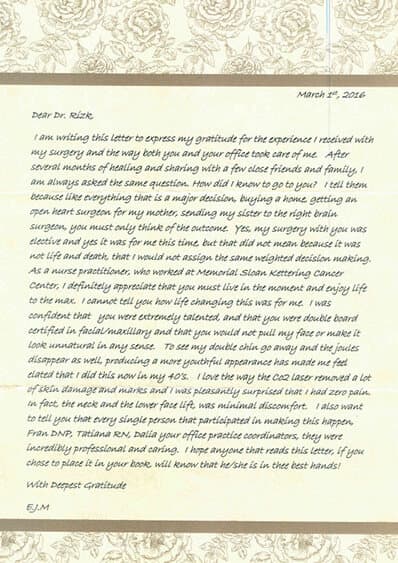 March 1st, 2016
Dear Dr. Rizk,
I am writing this letter to express my gratitude for the experience I received with
my surgery and the way both you and your office took care of me. After
several months of healing and sharing with a few close friends and family, I
am always asked the same question. How did I know to go to you? I tell them
because like everything that is a major decision, buying a home, getting an
open heart surgeon for my mother, sending my sister to the right brain
surgeon, you must only think of the outcome. Yes, my surgery with you was
elective and yes it was for me this time, but that did not mean because it was
not life and death, that I would not assign the same weighted decision making.
As a nurse practitioner, who worked at Memorial Sloan Kettering Cancer
Center, I definitely appreciate that you must live in the moment and enjoy life
to the max. I cannot tell you how life changing this was for me. I was
confident that you were extremely talented, and that you were double board
certified in facial/maxillary and that you would not pull my face or make it
look unnatural in any sense. To see my double chin go away and the joules
disappear as well, producing a more youthful appearance has made me feel
elated that I did this now in my 40's. I love the way the Co2 laser removed a lot
of skin damage and marks and I was pleasantly surprised that I had zero pain.
In fact, the neck and the lower face lift, was minimal discomfort. I also want
to tell you that every single person that participated in making this happen,
Fran DNP, Tatiana RN, Dalia your office practice coordinators, they were
incredibly professional and caring. I hope anyone that reads this letter, if you
chose to place it in your book, will know that he/she is in thee best hands!
With Deepest Gratitude
E.J.M